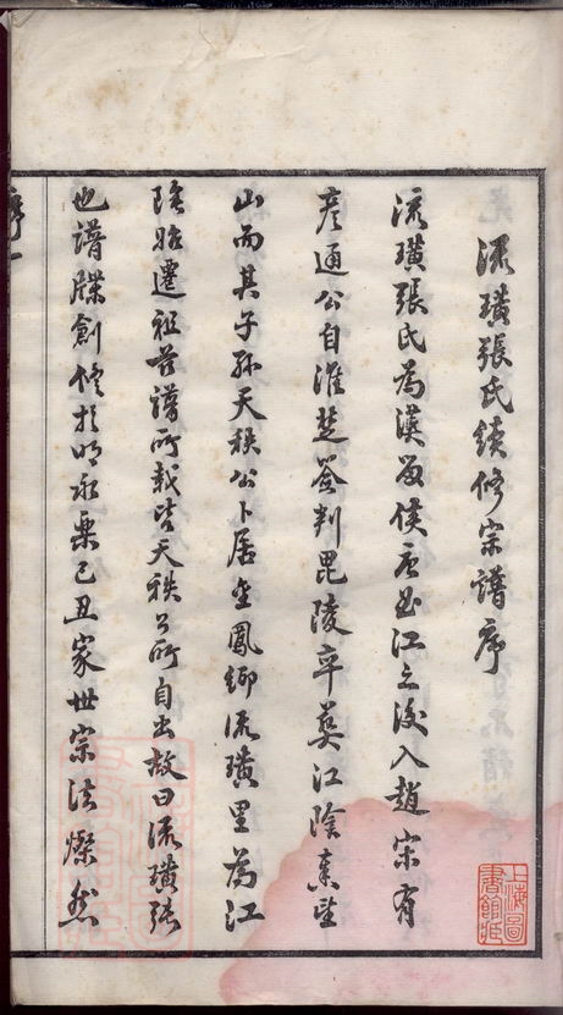 流璜張氏續修宗譜序
流璜張氏為漢留侯唐曲江之後入趙宋有
彥通公自淮楚簽判毘陵卒葬江陰秦望
山而其子孫天秩公卜居金鳳鄉流璜里為江
陰始遷祖若譜所載皆天秩公所自出故曰流璜張
也譜牒創修於明永樂己丑家世宗法燦然
序一
上海圖
書館藏